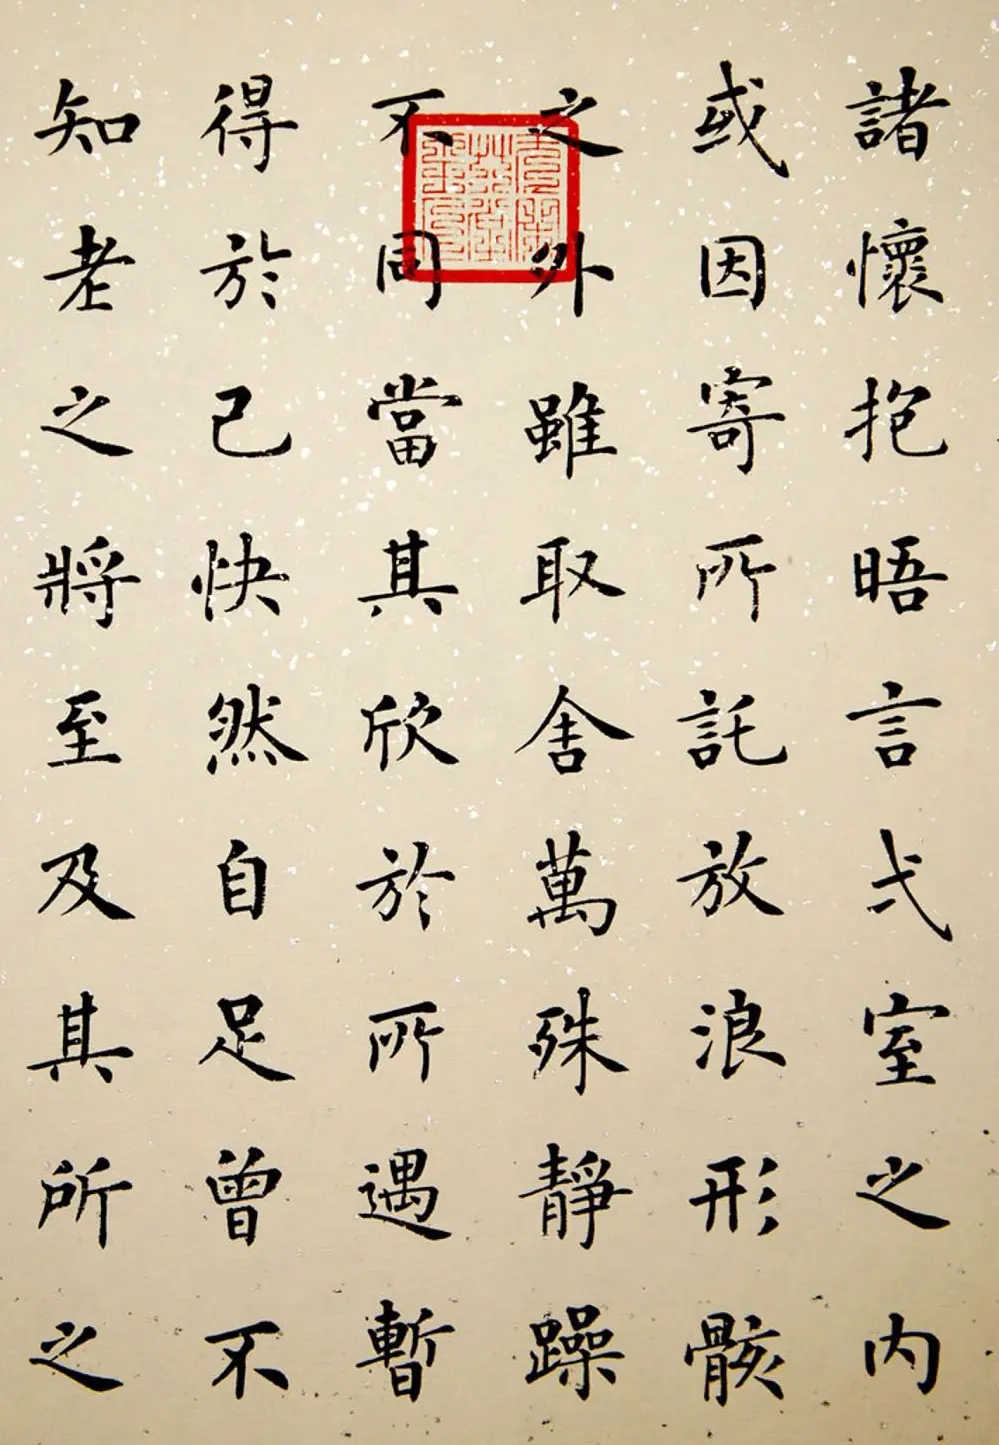 諸懷抱晤言弌室之内
或因寄所託放浪形骸
之外雖取舍萬殊靜躁
不同當其欣於所遇暫
得於己快然自足曾不
知老之將至及其所之